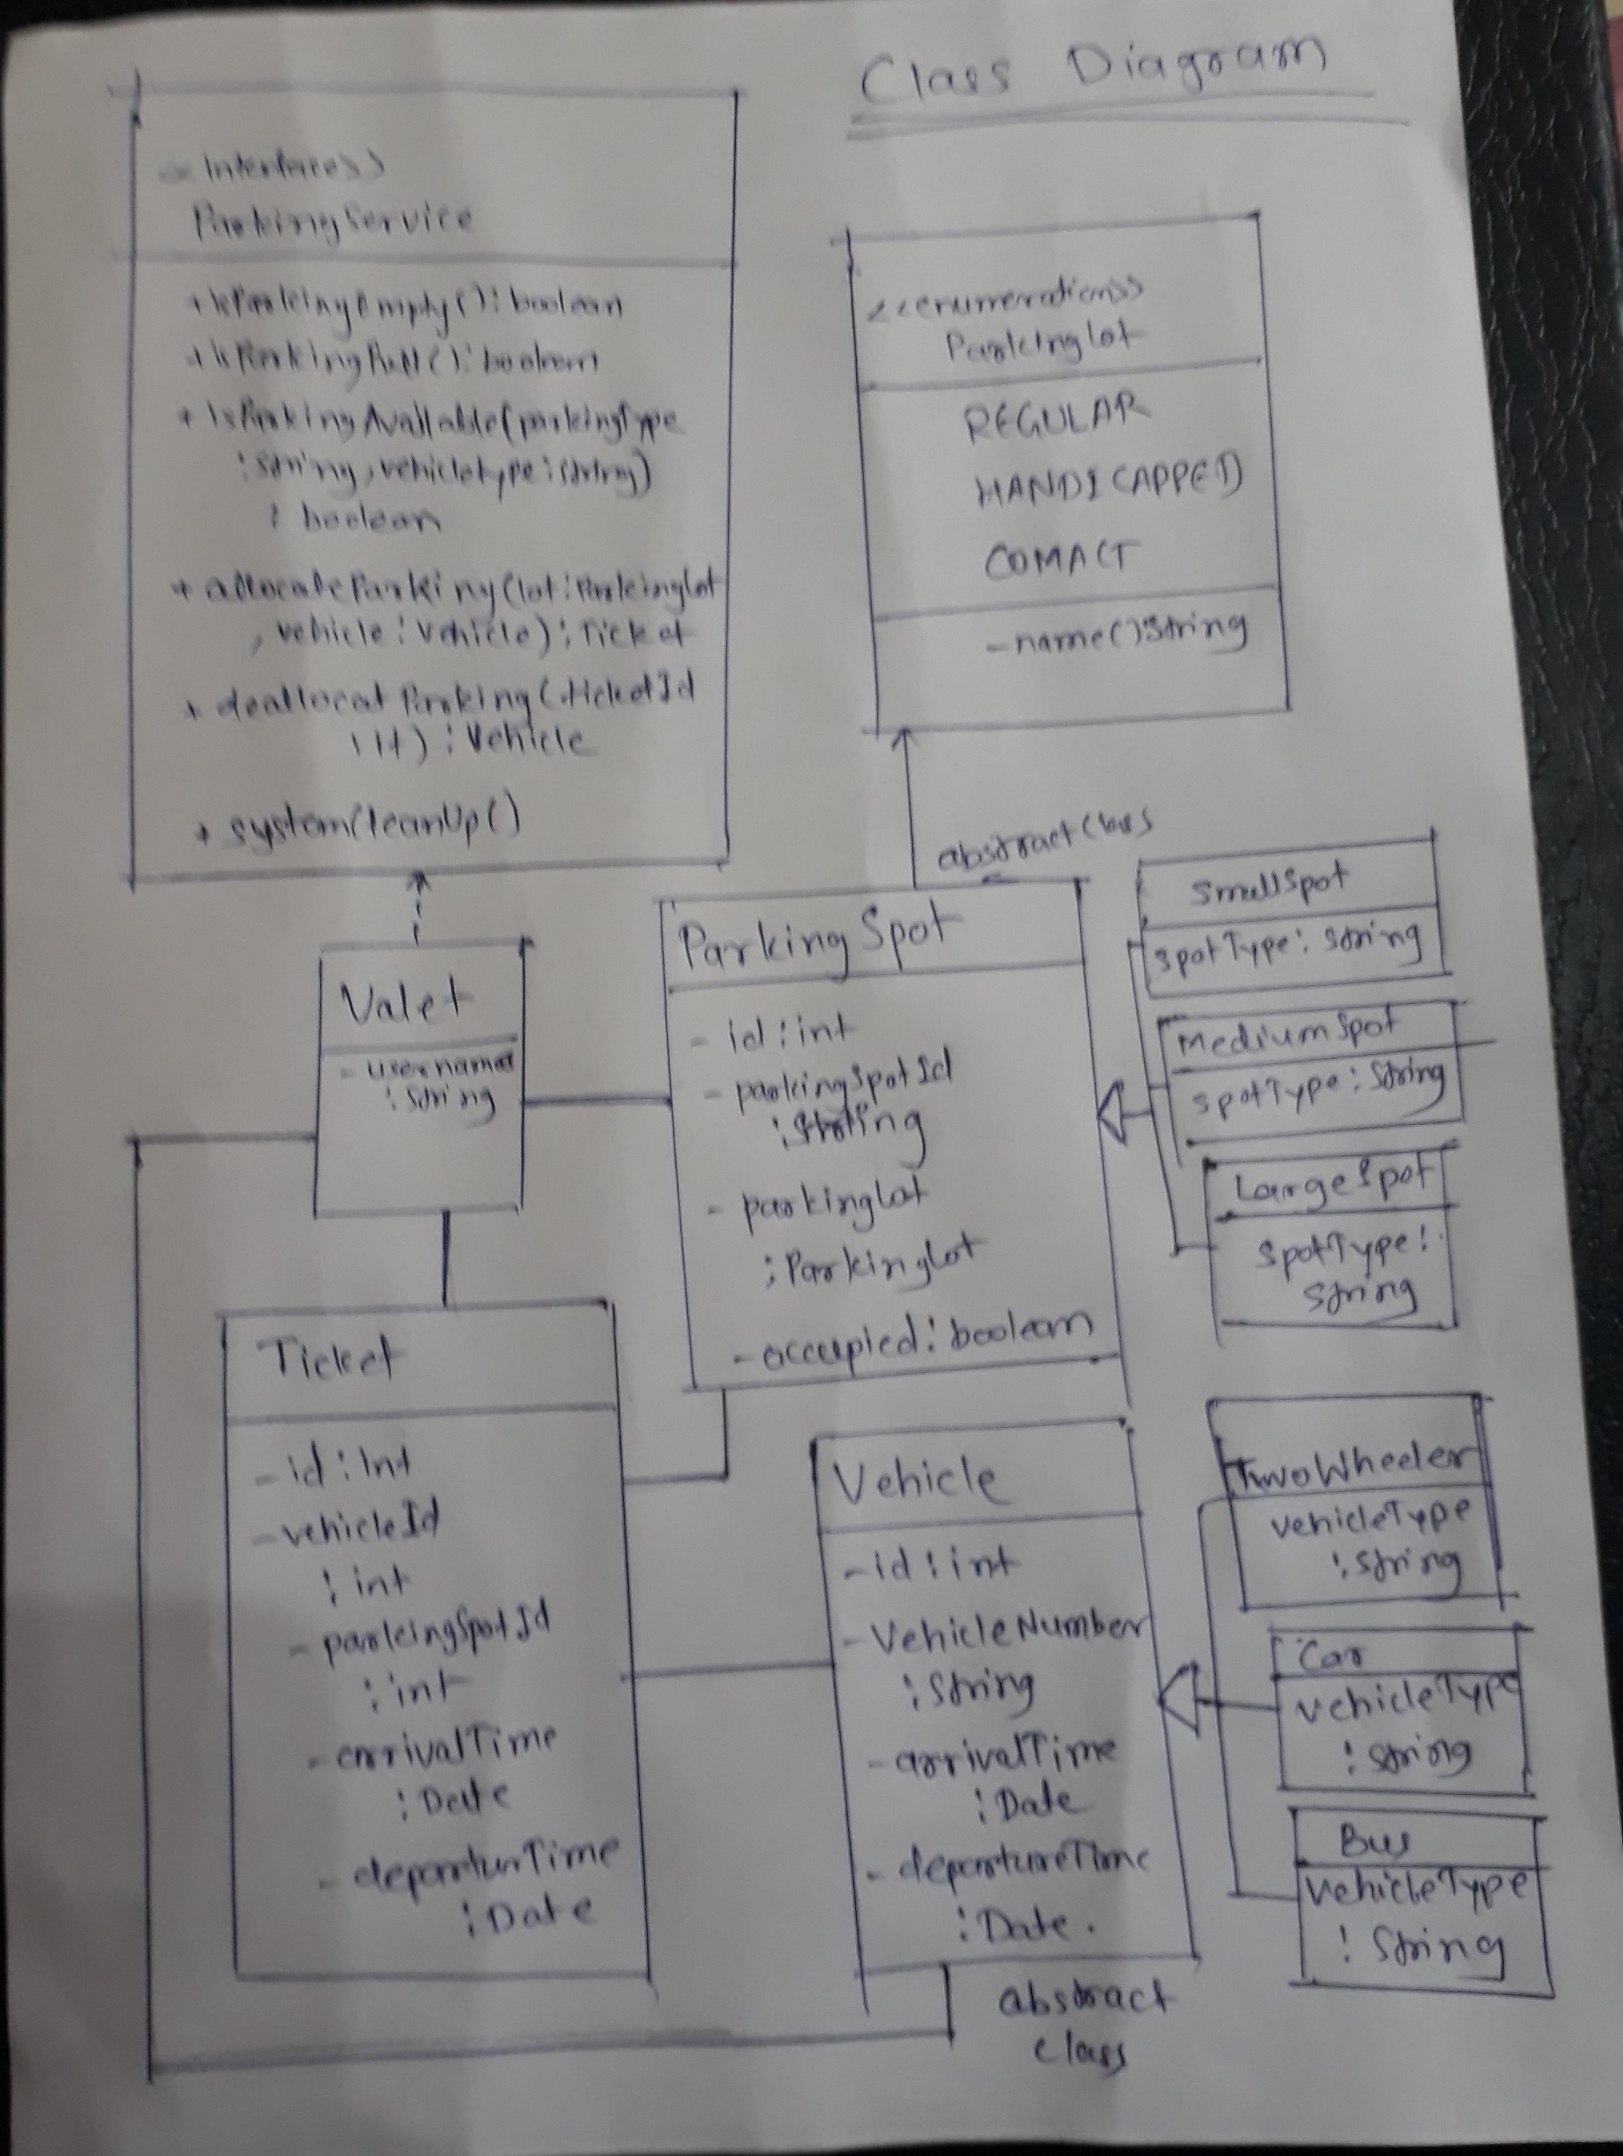 Class Diagram
<Interface>>
ParkingService
+isParkingEmpty(): boolean
+isParkingFull(): boolean
+ isParkingAvailable(parkingType
:string, vehicletype:string)
: boolean
+ allocateParking(lot:Parkinglot
, vehicle: Vehicle): Ticket
+ deallocatParking(:ticketId
:it): Vehicle
+ systemCleanUp()
<<enumeration>>
Parkinglot
REGULAR
HANDICAPPED
COMACT
-name():String
abstract class
ParkingSpot
- id:int
- parkingSpotId
:String
- parkingLot
:ParkingLot
-occupied:boolean
SmallSpot
SpotType: String
MediumSpot
SpotType: String
LargeSpot
SpotType:
String
Valet
- username
:String
Ticket
-id:Int
-vehicleId
:int
-parkingSpotId
:int
-arrivalTime
:Date
-departurTime
:Date
Vehicle
-id:int
-VehicleNumber
:String
-arrivalTime
:Date
-departureTime
:Date.
abstract
class
TwoWheeler
vehicleType
:String
Car
vehicleType
:String
Bus
VehicleType
:String